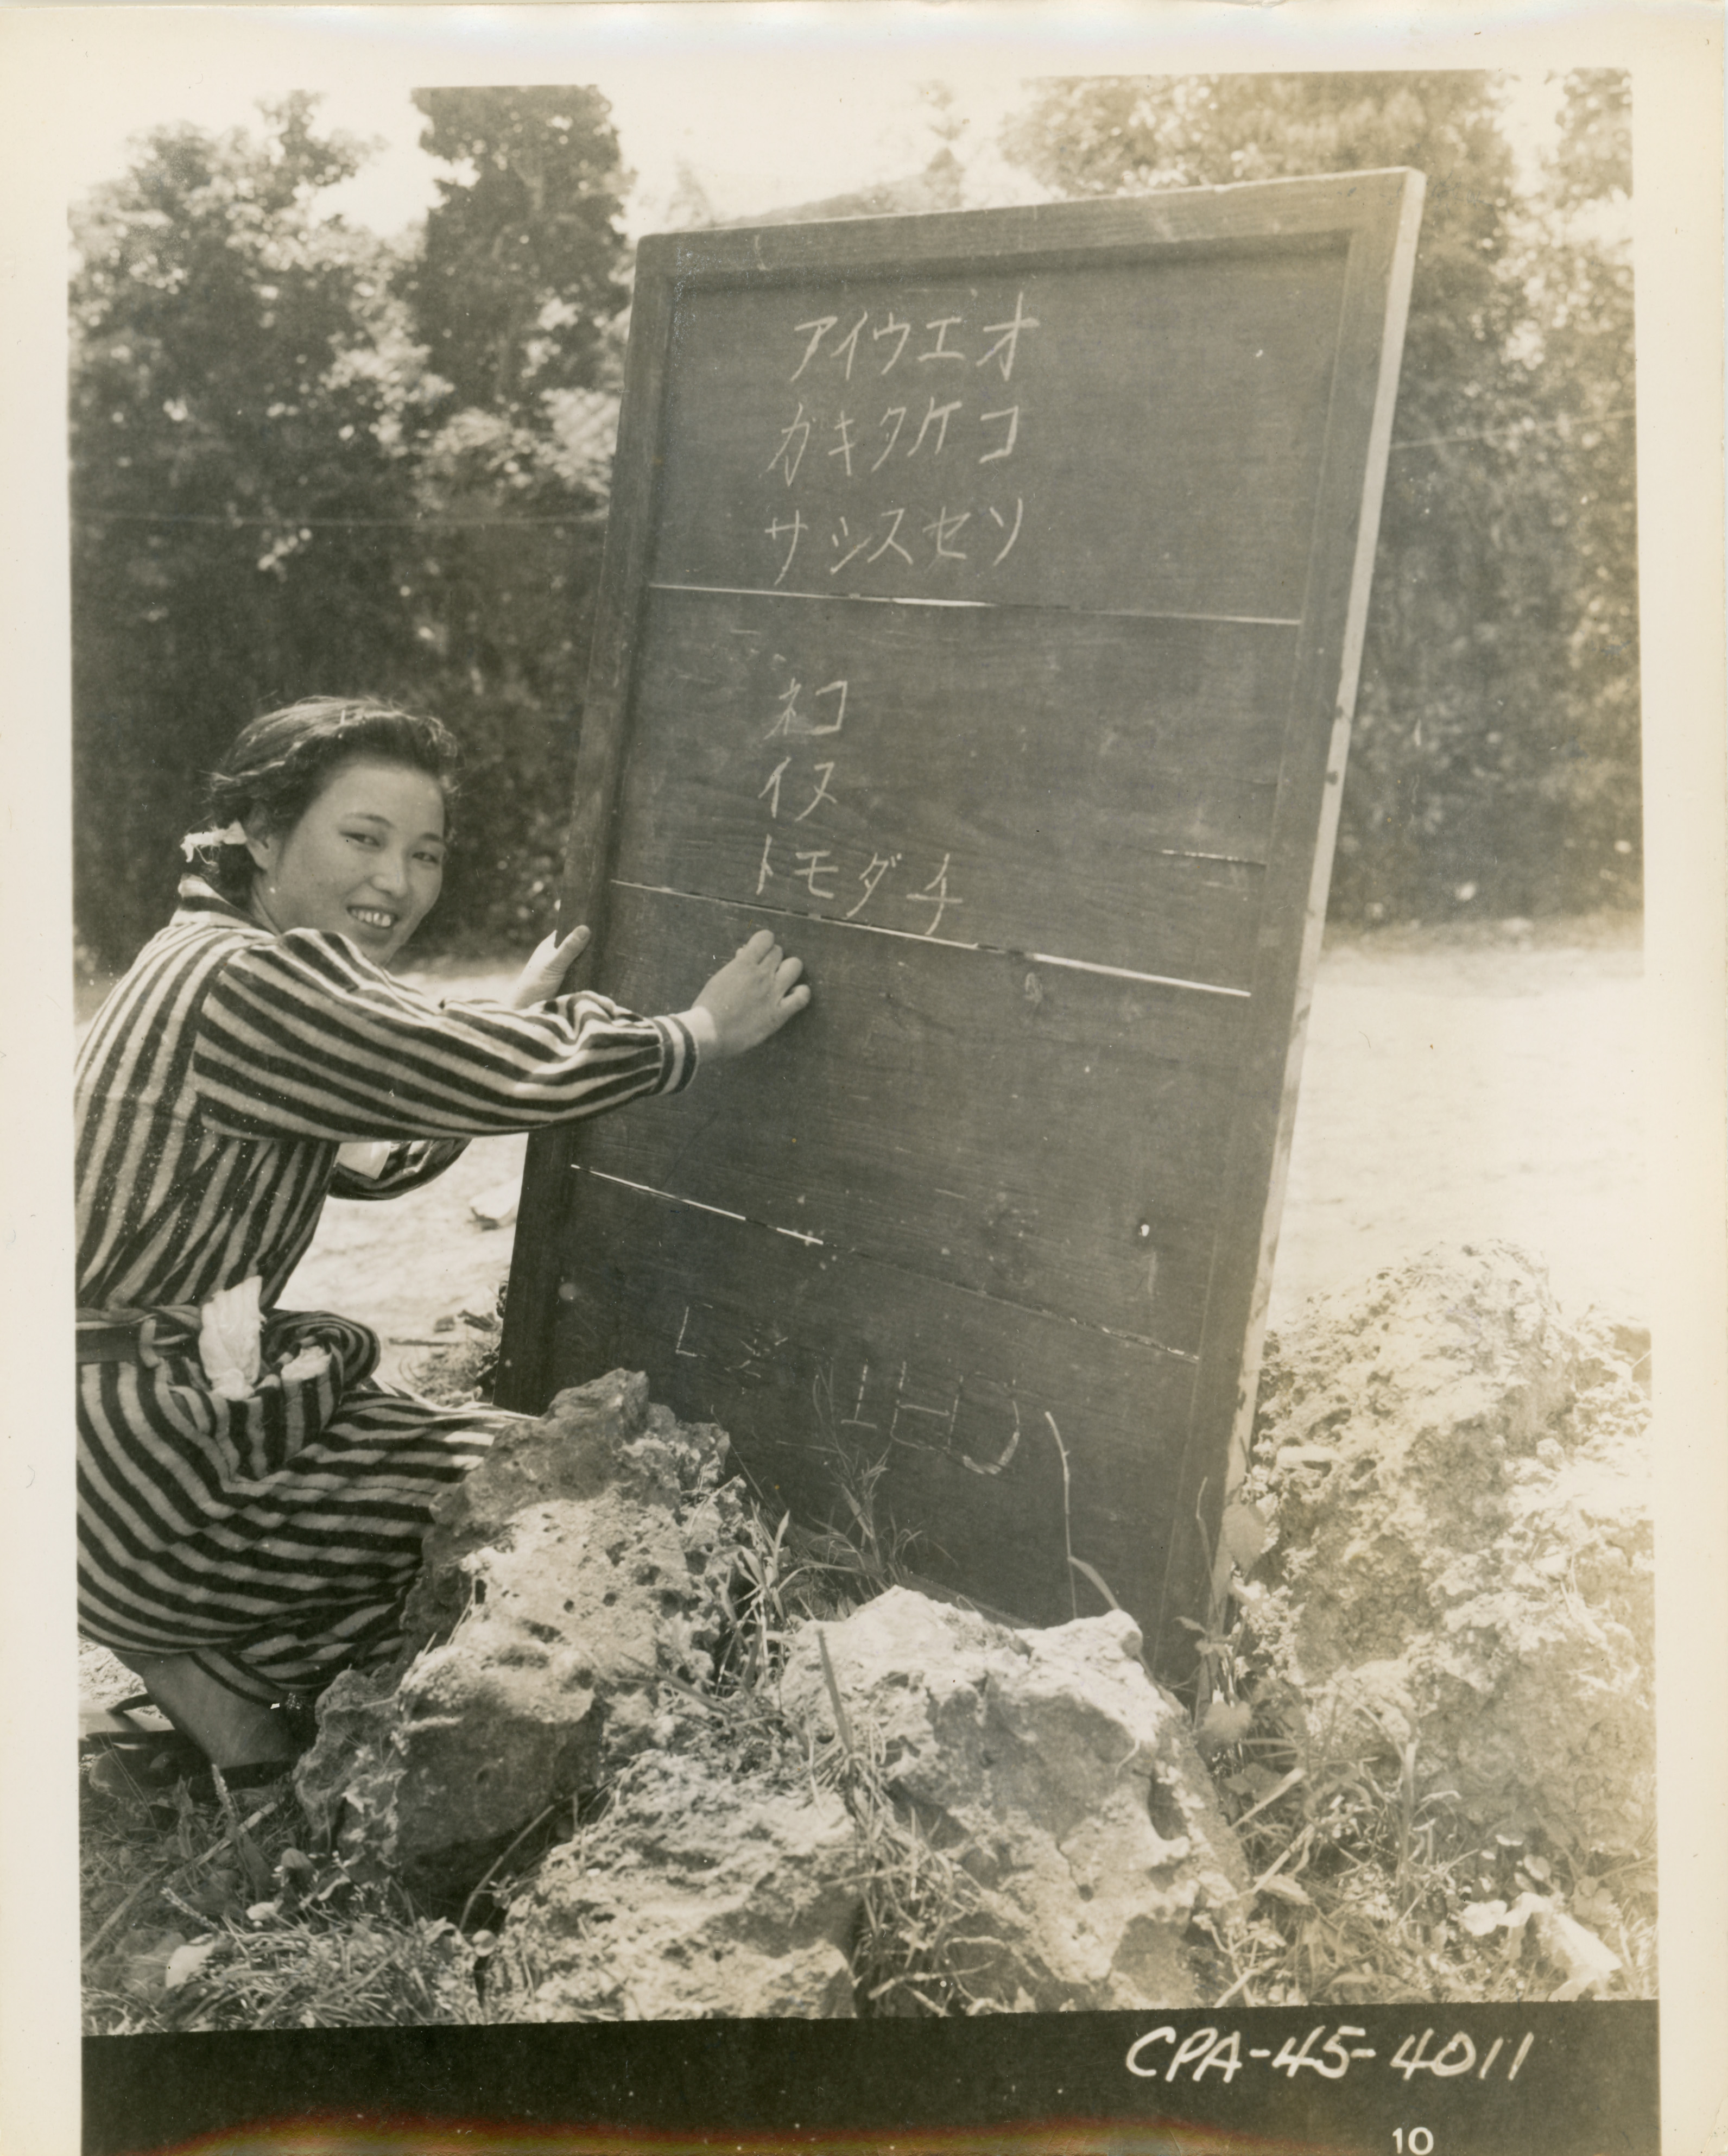 アイウエオ
ガキタケコ
サシスセソ
ネコ
イヌ
トモダチ
CPA-45-4011
10